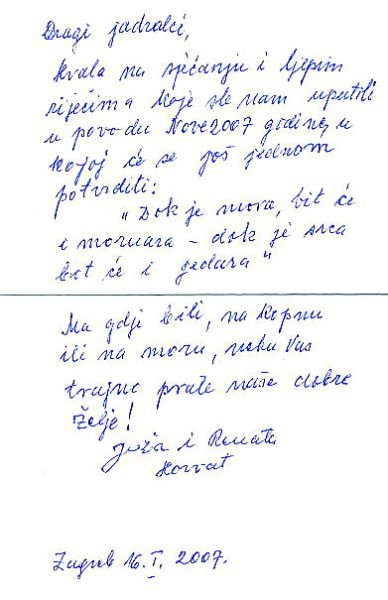 Dragi jadralci,
Hvala na sjećanju i ljepim
riječima koje ste nam uputili
u povodu Nove 2007 godine, u
kojoj će se još jednom
potvrditi:
"Dok je mora, bit će
i mornara - dok je srca
bit će i jedara"
Ma gdje bili, na kopnu
ili na moru, neka Vas
trajno prate naše dobre
želje!
Joža i Renata
Horvat
Zagreb 16. I. 2007.